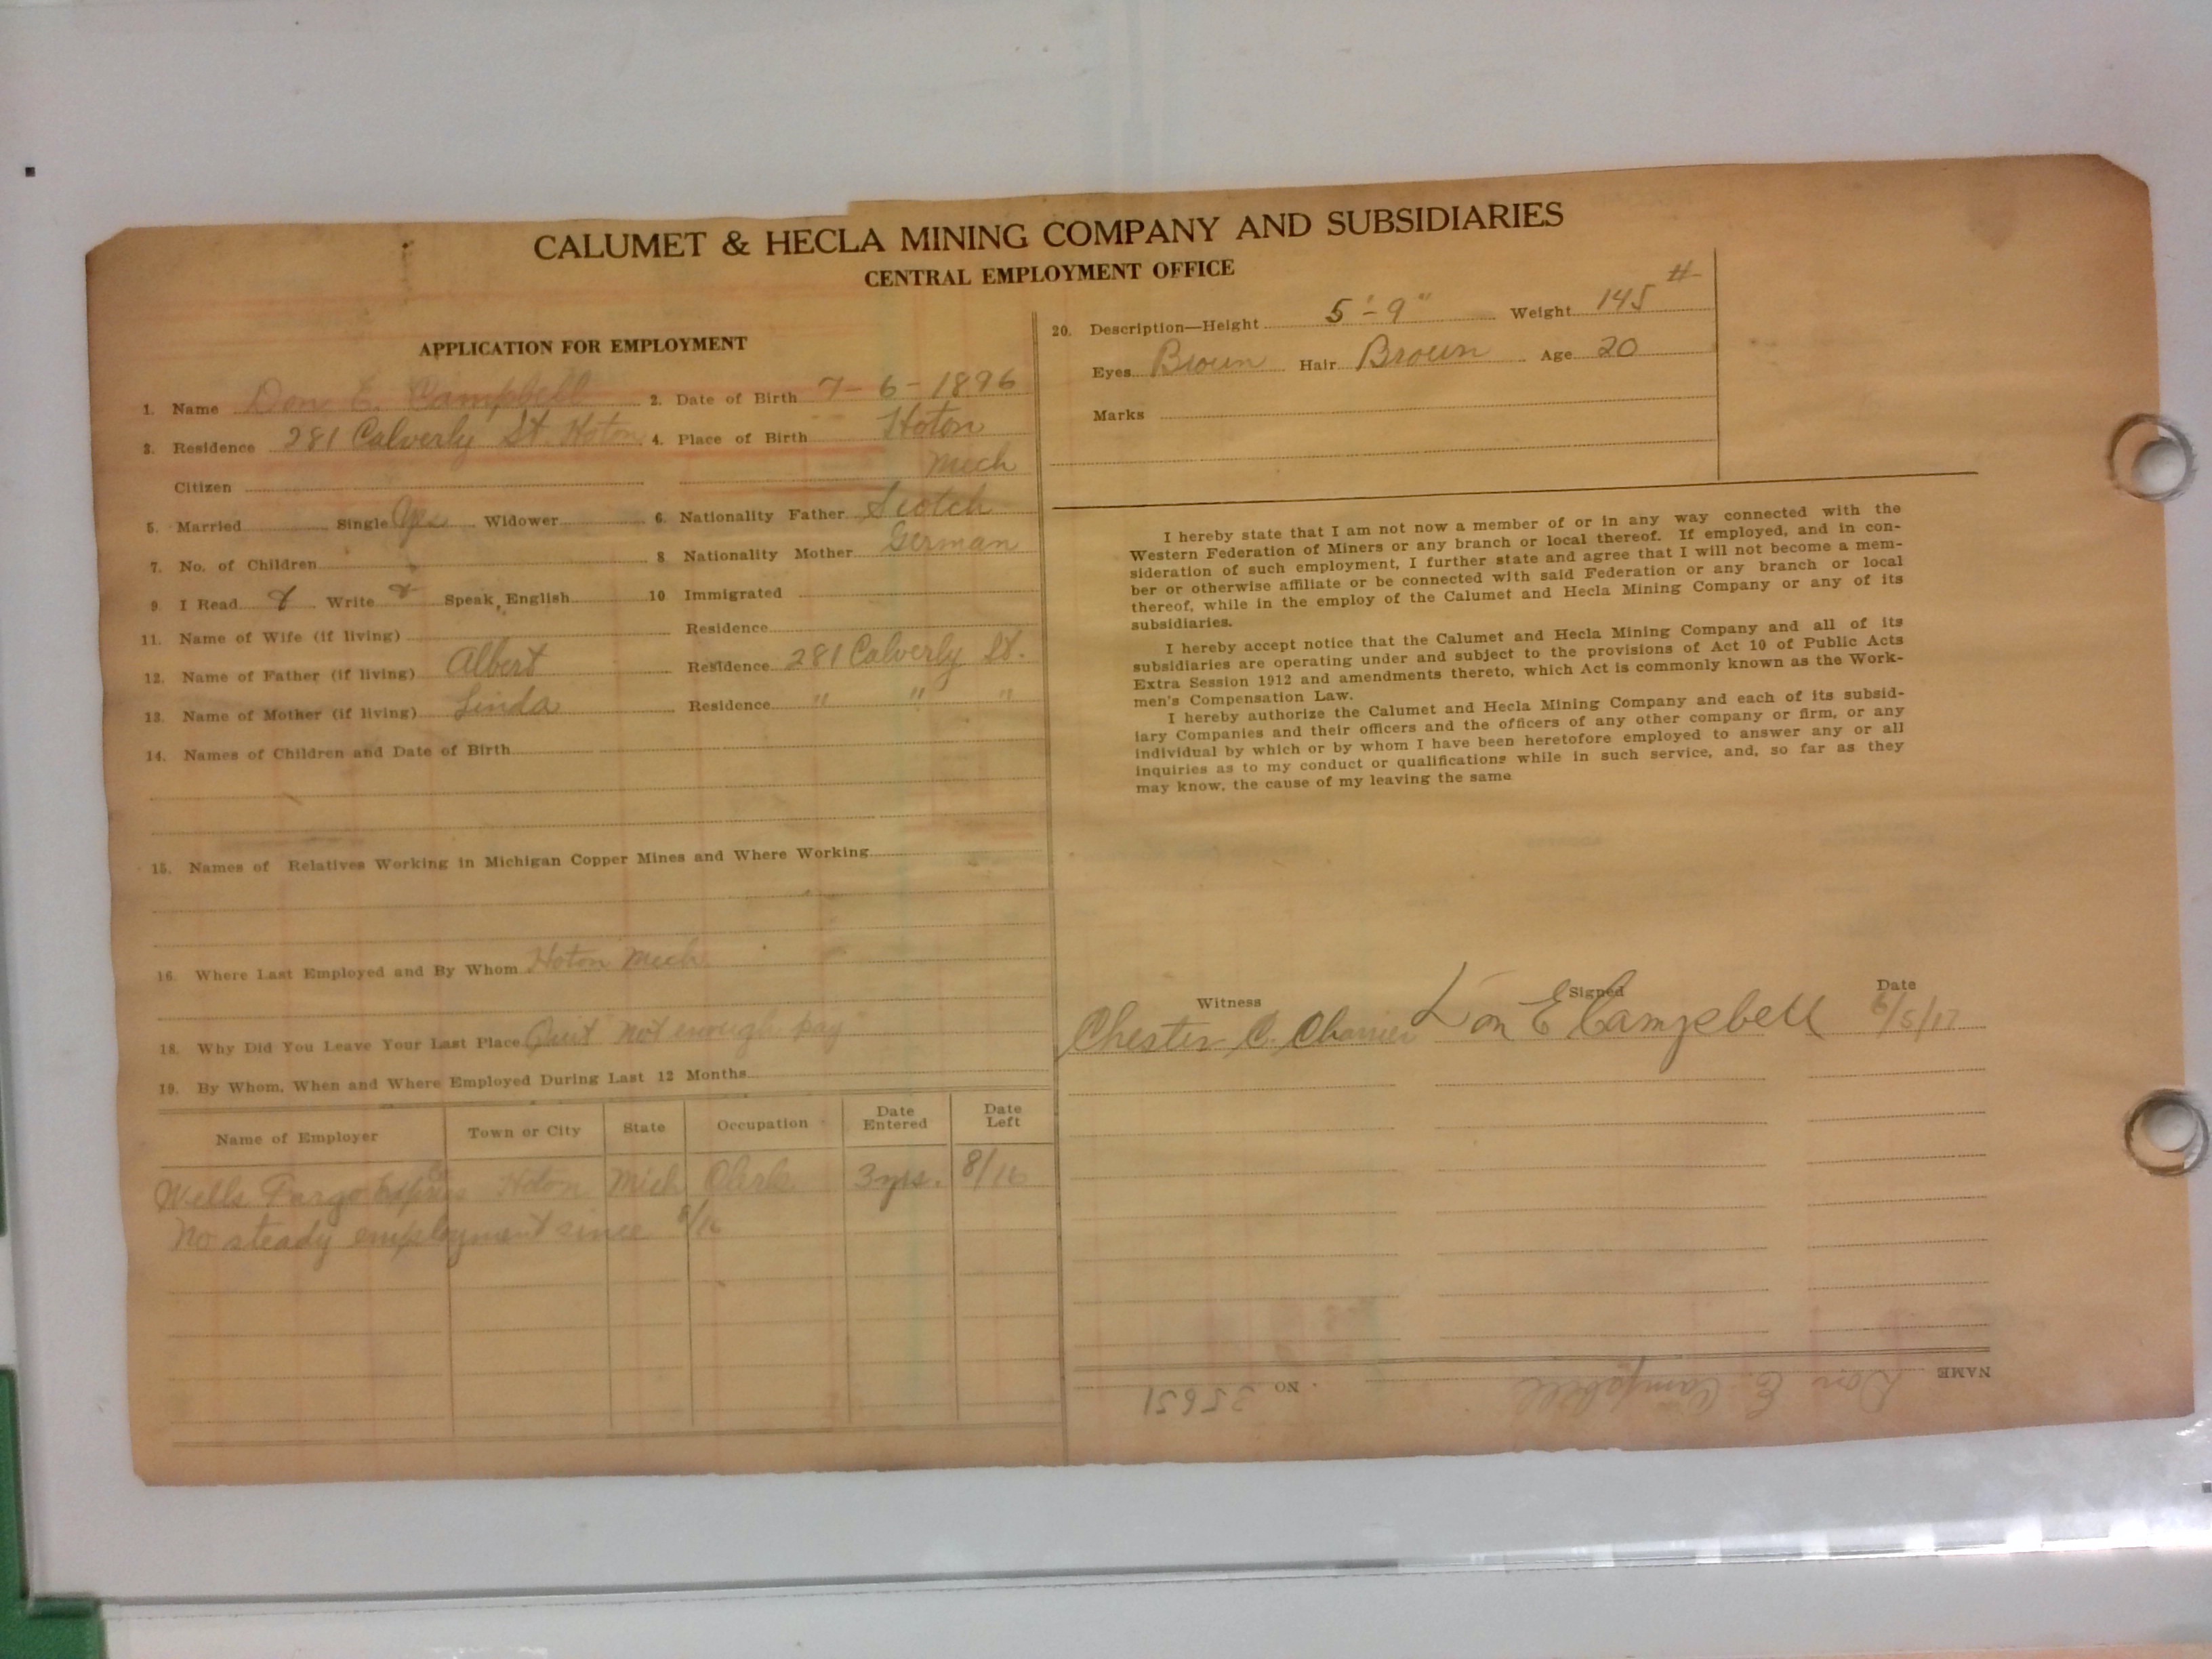 CALUMET & HECLA MINING COMPANY AND SUBSIDIARIES
CENTRAL EMPLOYMENT OFFICE
APPLICATION FOR EMPLOYMENT
1. Name Don E. Campbell 2. Date of Birth 7-6-1896
3. Residence 281 Calverly St. Hoton 4. Place of Birth Hoton
Citizen Mich
5. Married Single Yes Widower 6. Nationality Father Scotch
7. No. of Children 8 Nationality Mother German
9. I Read Write Speak English 10 Immigrated
11. Name of Wife (if living) Residence
12. Name of Father (if living) Albert Residence 281 Calverly St.
13. Name of Mother (if living) Linda Residence " " "
14. Names of Children and Date of Birth
15. Names of Relatives Working in Michigan Copper Mines and Where Working
16. Where Last Employed and By Whom Hoton Mich
18. Why Did You Leave Your Last Place Quit not enough pay
19. By Whom, When and Where Employed During Last 12 Months
Name of Employer Town or City State Occupation Date Entered Date Left
Wells Fargo Express Co Hoton Mich Clerk 3 yrs. 8/16
No steady employment since 8/16
20. Description—Height 5'-9" Weight 145 #
Eyes Brown Hair Brown Age 20
Marks
I hereby state that I am not now a member of or in any way connected with the
Western Federation of Miners or any branch or local thereof. If employed, and in con-
sideration of such employment, I further state and agree that I will not become a mem-
ber or otherwise affiliate or be connected with said Federation or any branch or local
thereof, while in the employ of the Calumet and Hecla Mining Company or any of its
subsidiaries.
I hereby accept notice that the Calumet and Hecla Mining Company and all of its
subsidiaries are operating under and subject to the provisions of Act 10 of Public Acts
Extra Session 1912 and amendments thereto, which Act is commonly known as the Work-
men's Compensation Law.
I hereby authorize the Calumet and Hecla Mining Company and each of its subsid-
iary Companies and their officers and the officers of any other company or firm, or any
individual by which or by whom I have been heretofore employed to answer any or all
inquiries as to my conduct or qualifications while in such service, and, so far as they
may know, the cause of my leaving the same
Witness Signed Date
Chester C. Don E Campbell 6/5/17
NAME Don E. Campbell NO 35651